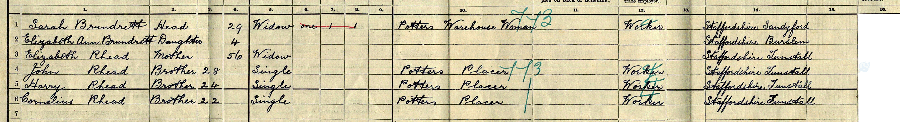 1 Sarah Brundrett Head 29 Widow one 1 1 Potters Warehouse Woman 773 Worker Staffordshire Sandyford
2 Elizabeth Ann Brundrett Daughter 4 Staffordshire Burslem
3 Elizabeth Rhead Mother 56 Widow Staffordshire Tunstall
4 John Rhead Brother 28 Single Potters Placer 773 Worker Staffordshire Tunstall
5 Harry Rhead Brother 24 Single Potters Placer Worker Staffordshire Tunstall
6 Cornelius Rhead Brother 22 Single Potters Placer Worker Staffordshire Tunstall
7